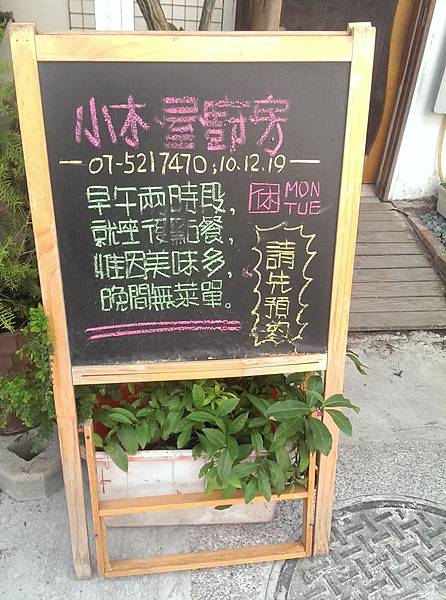 小木屋廚房
07-5217470;10.12.19
早午兩時段,
就座後點餐,
惟因美味多,
晚間無菜單。
休 MON
TUE
請先預約